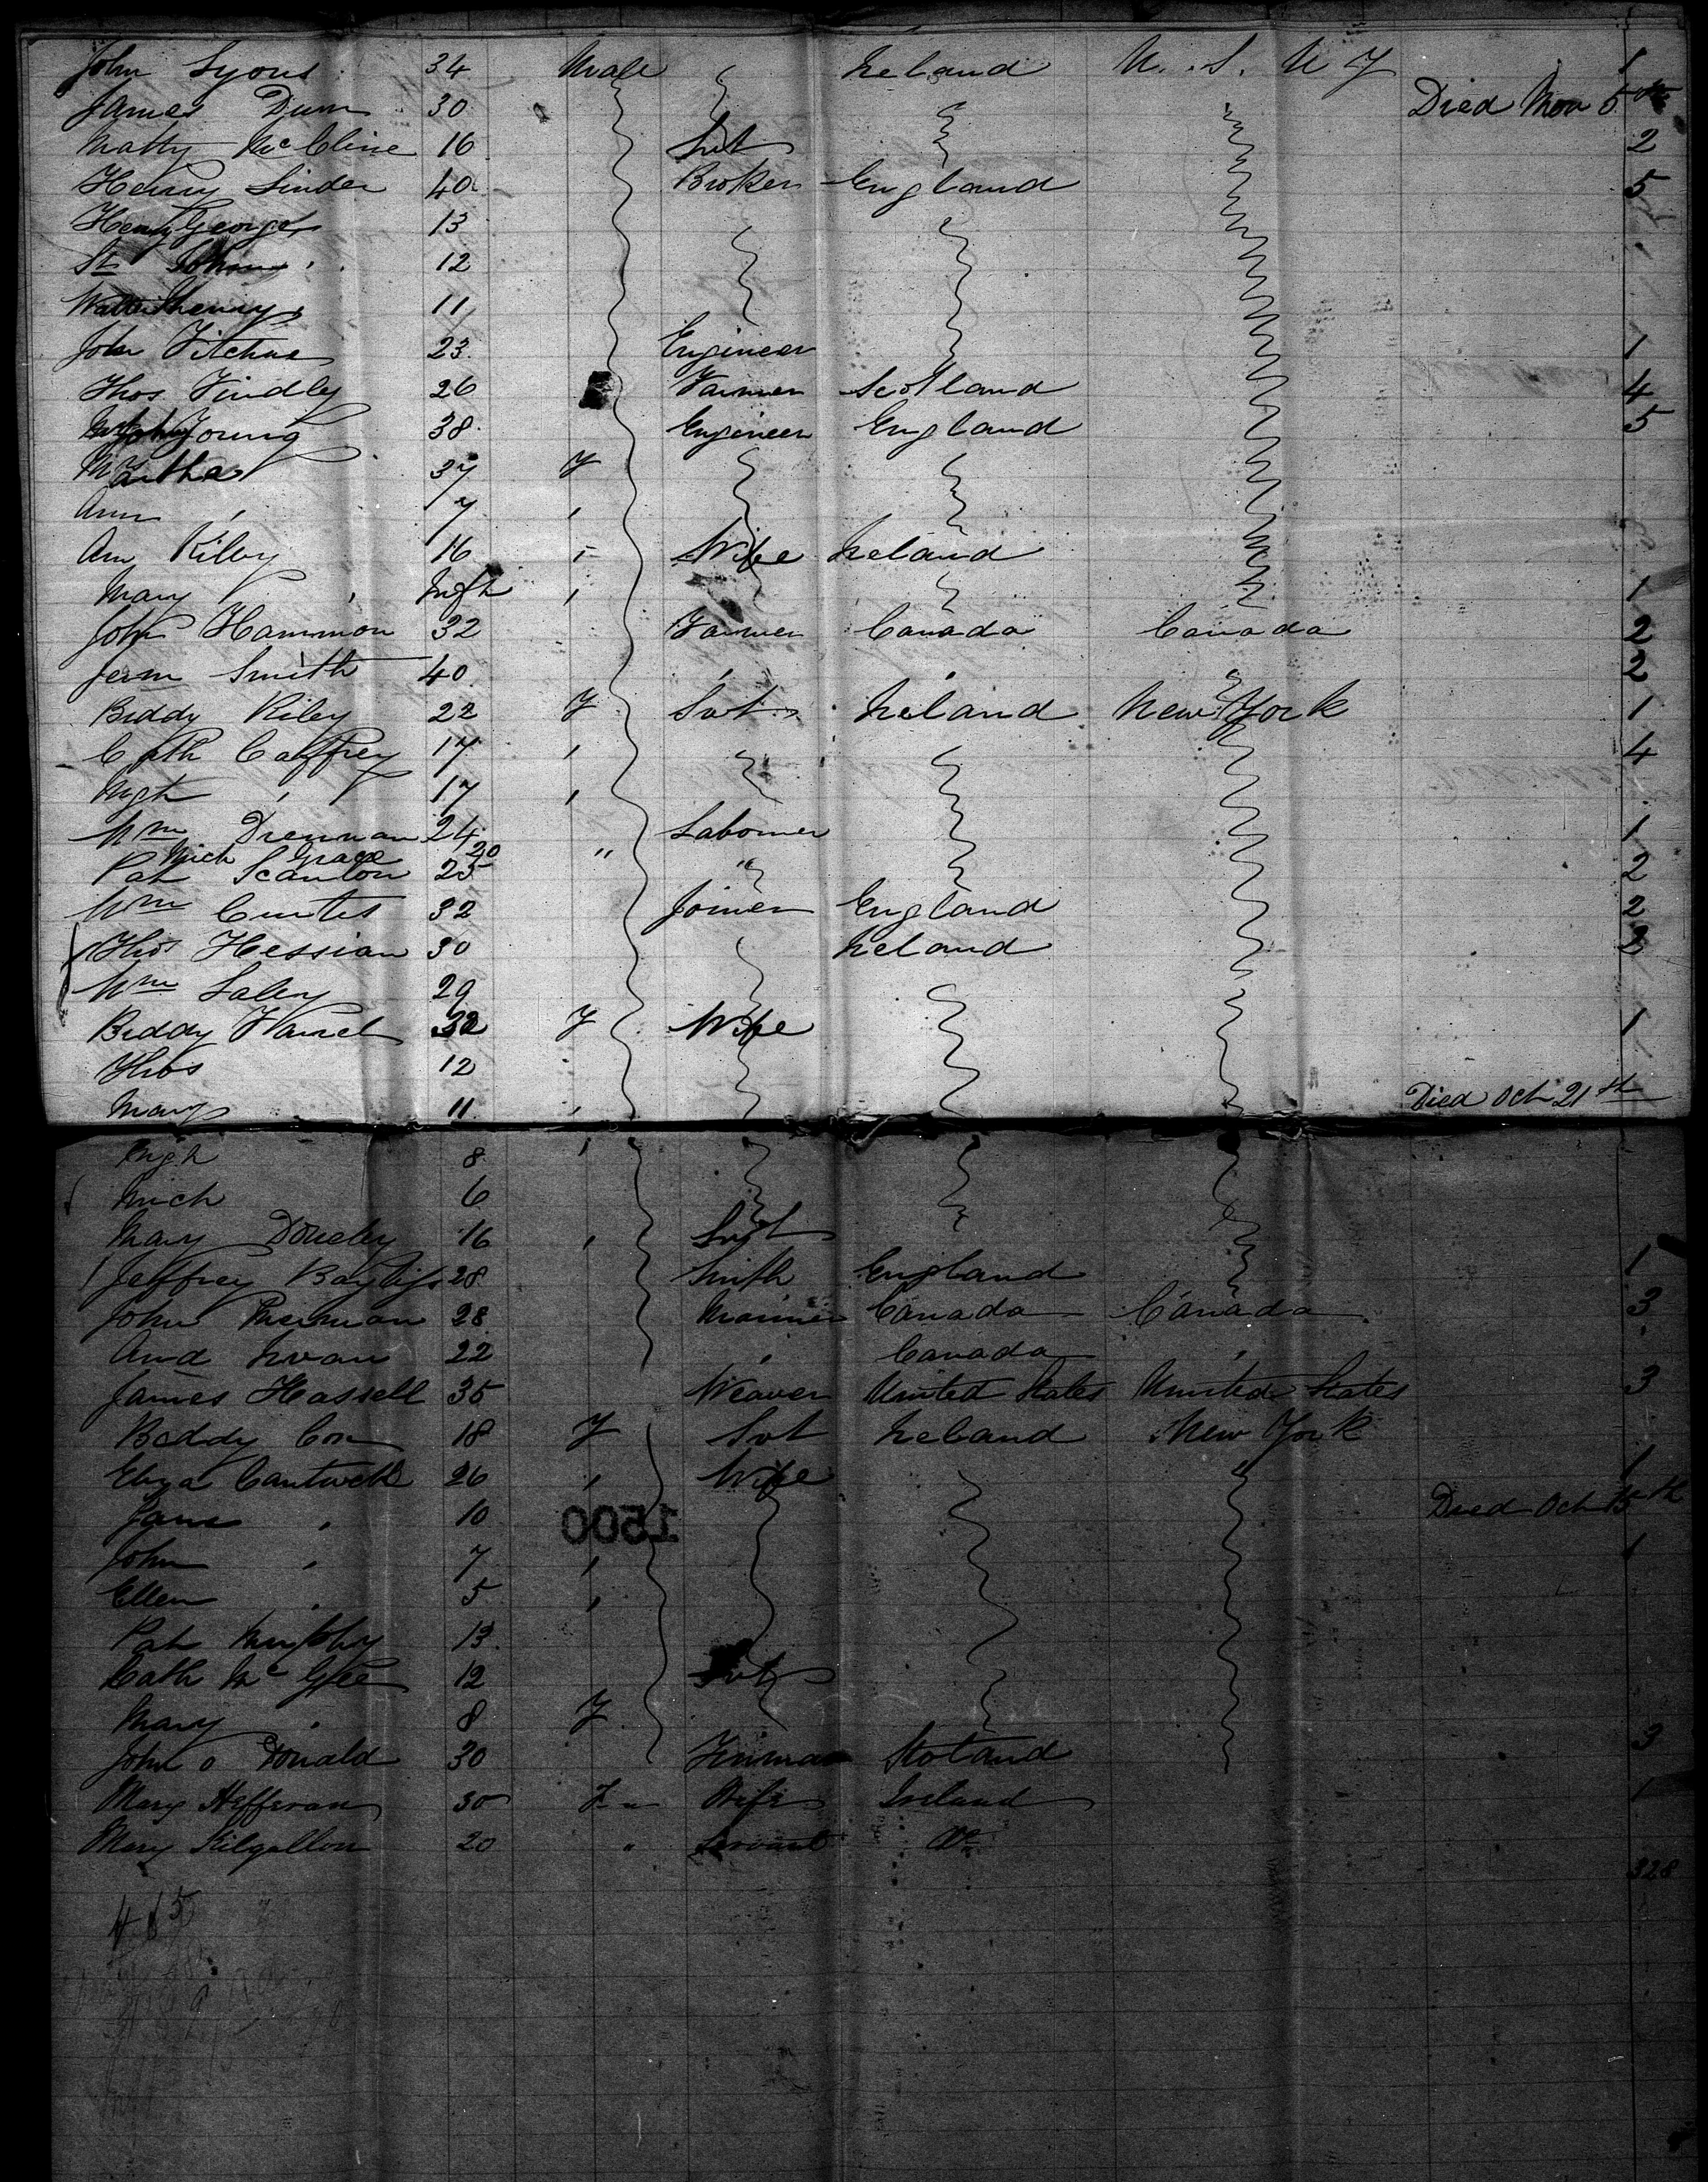 John Lyons 34 Male Ireland U. S. N Y 1
James Dunn 30 Died Nov 5th
Matty McCline 16 Svt 2
Henry Linder 40 Broker England 5
Henry George 13
St John " 12
Walter Henry 11
John Fitchue 23 Engineer 1
Thos Findley 26 Farmer Scotland 4
John Young 38 Engineer England 5
Martha 37 F
Ann " 7 "
Ann Riley 16 " Wife Ireland
Mary " Inft " 1
John Hammon 32 Farmer Canada Canada 2
Jerm Smith 40 " " 2
Biddy Riley 22 F Svt Ireland New York 1
Cath Caffrey 17 " 4
Mgt " 17 "
Wm Drennan 24 Labourer 1
Mich Grace 20 " "
Pat Scanlon 25 2
Wm Curtis 32 Joiner England 2
Thos Hessian 30 Ireland 2
Wm Laley 29
Biddy Hamel 32 F Wife 1
Thos 12
Mary 11 " Died Oct 21st
Mgt 8 "
Mich 6
Mary Doueley 16 " Svt
Jeffrey Bayliss 28 Smith England 1
John Merman 28 Mariner Canada Canada 3
And 22 " Canada "
James Hassell 35 Weaver United States United States 3
Biddy Con 18 F Svt Ireland New York
Eliza Cantwell 26 " Wife 1
Jane " 10 Died Oct 15th
1500
John " 7 " 1
Ellen " 5 "
Pat Murphy 13
Cath McGee 12 Svt
Mary " 8 F
John o Donald 30 Fireman Stotand 3
Mary Heffernan 30 F " Wife Ireland 1
Mary Kilgallon 20 " Servant Do
328